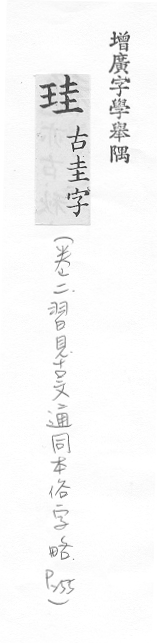 增廣字學舉隅
珪 古圭字
(卷二.習見古文通同本俗字略. P.155)